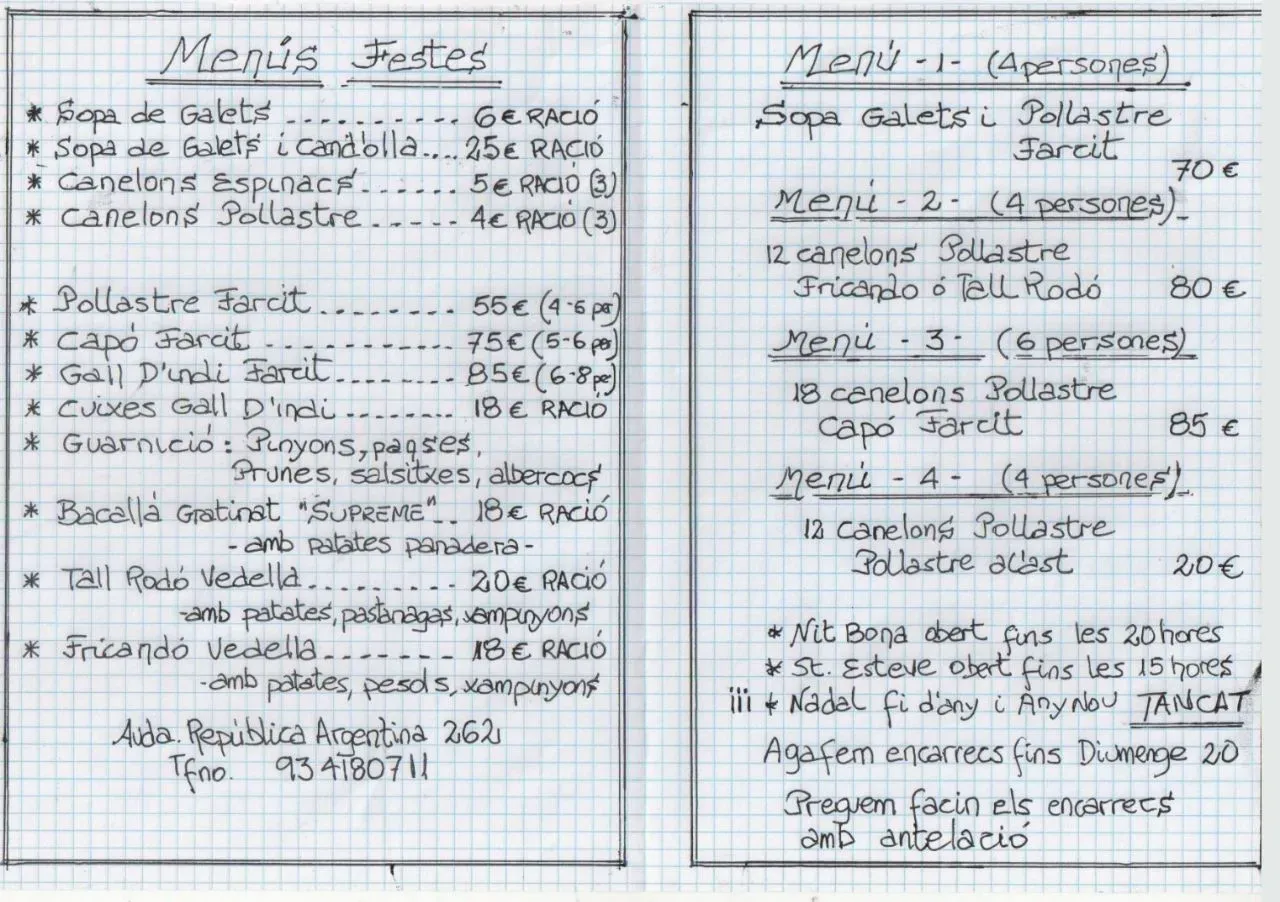 Menús Festes
* Sopa de Galets .......... 6€ RACIÓ
* Sopa de Galets i Cand'olla.... 25€ RACIÓ
* Canelons Espinacs...... 5€ RACIÓ (3)
* Canelons Pollastre..----- 4€ RACIÓ (3)
* Pollastre Farcit......... 55€ (4-6 per)
* Capó Farcit ............ 75€ (5-6 per)
* Gall D'indi Farcit........ 85€ (6-8 per)
* Cuixes Gall D'indi ........ 18€ RACIÓ
* Guarnició: Pinyons, panses,
Prunes, salsitxes, albercocs
* Bacallà Gratinat "SUPREME".. 18€ RACIÓ
- amb patates panadera -
* Tall Rodó Vedella.......... 20€ RACIÓ
-amb patates, pastanagas, xampinyons
* Fricandó Vedella....... 18€ RACIÓ
-amb patates, pesols, xampinyons
Avda. República Argentina 262
Tfno. 934180711
Menú -1- (4 persones)
Sopa Galets i Pollastre
Farcit
70€
Menú - 2 - (4 persones)
12 canelons Pollastre
Fricando ó Tall Rodó 80€
Menú - 3 - (6 persones)
18 canelons Pollastre
Capó Farcit 85€
Menú - 4 - (4 persones)
12 canelons Pollastre
Pollastre al'ast 20€
* Nit Bona obert fins les 20 hores
* St. Esteve obert fins les 15 hores
iii * Nadal fi d'any i Any Nou TANCAT
Agafem encarrecs fins Diumenge 20
Preguem facin els encarrecs
amb antelació